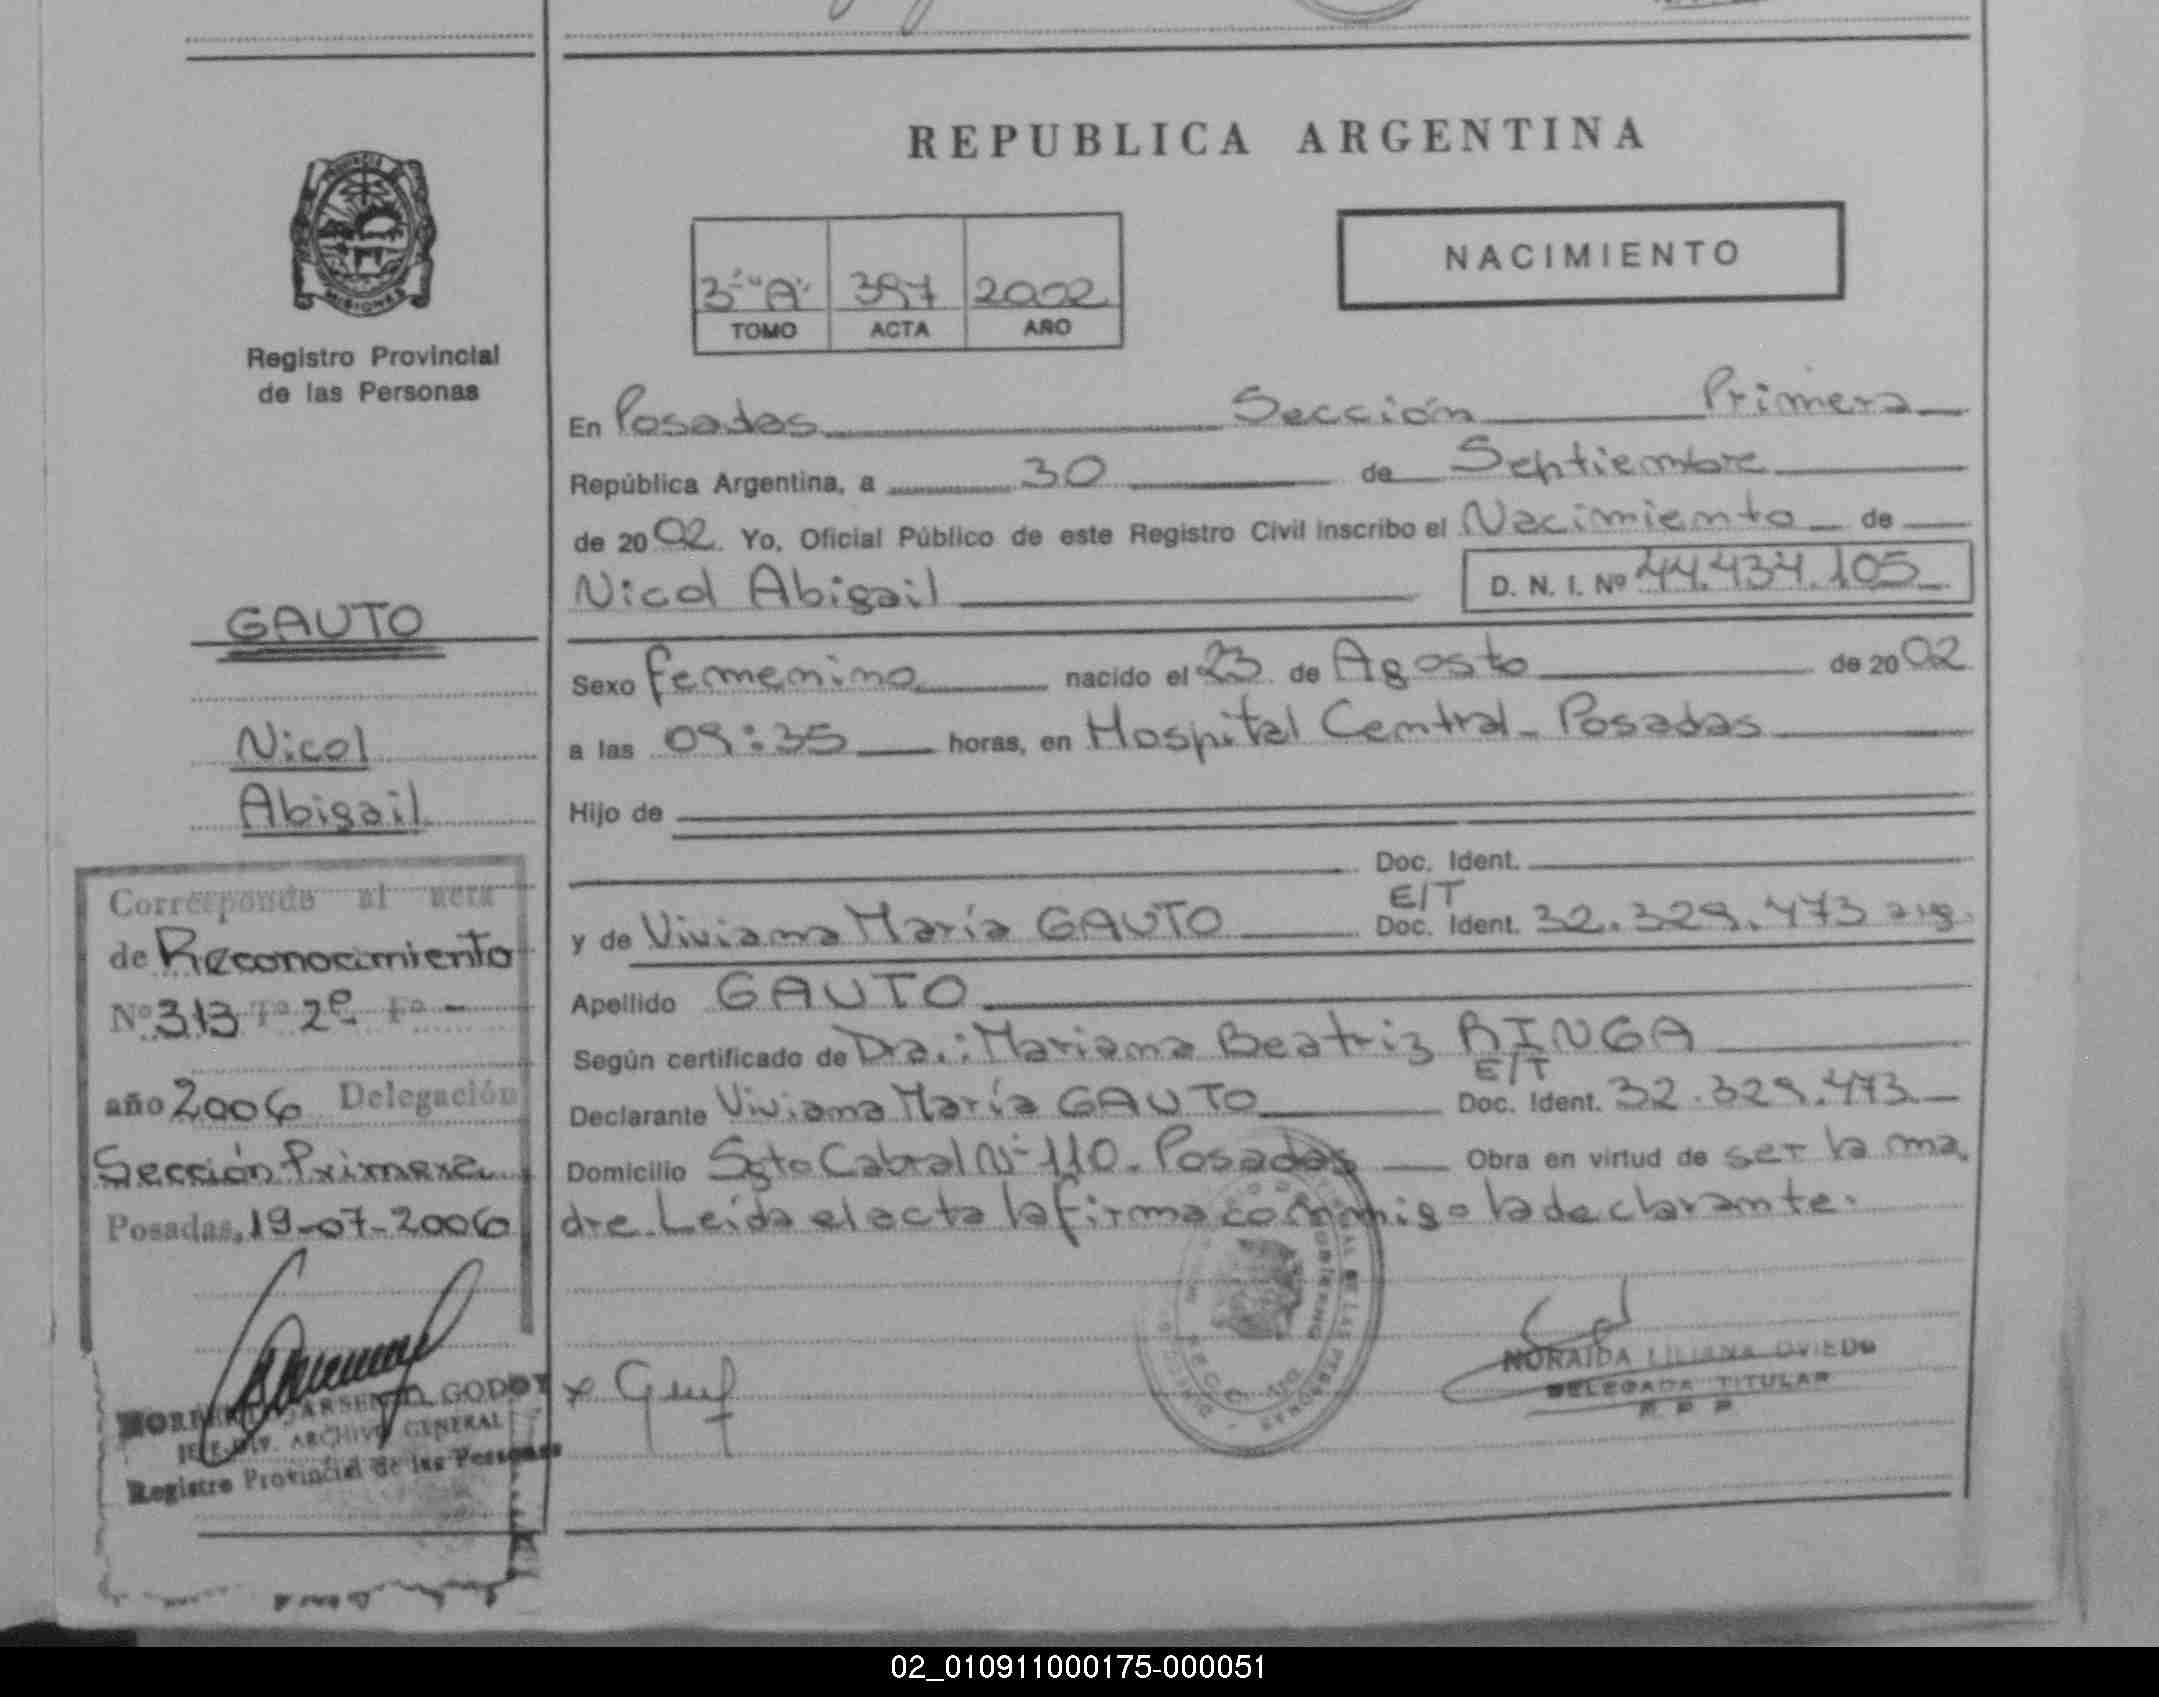 REPUBLICA ARGENTINA
MISIONES
Registro Provincial
de las Personas
NACIMIENTO
3º "A" 397 2002
TOMO ACTA AÑO
En Posadas Sección Primera
República Argentina, a 30 de Septiembre
de 2002. Yo, Oficial Público de este Registro Civil inscribo el Nacimiento de
Nicol Abigail D. N. I. Nº 44.434.105
Sexo femenino nacido el 23 de Agosto de 2002
a las 09:35 horas, en Hospital Central - Posadas
Hijo de
Doc. Ident.
E/T
y de Viviana María GAUTO Doc. Ident. 32.329.473 arg.
Apellido GAUTO
Según certificado de Dra.: Mariana Beatriz RINGA
E/T
Declarante Viviana María GAUTO Doc. Ident. 32.329.473.
Domicilio Sgto Cabral Nº 110. Posadas Obra en virtud de ser la ma
dre. Leída el acta la firma conmigo la declarante.
NORAIDA LILIANA OVIEDO
DELEGADA TITULAR
R P P
GAUTO
Nicol
Abigail
Corresponde al acta
de Reconocimiento
Nº 313 Tº 2º Fº -
año 2006 Delegación
Sección Primera
Posadas, 19-07-2006
ARSENIO GODOY
JEFE DIV. ARCHIVO GENERAL
Registro Provincial de las Personas
02_010911000175-000051